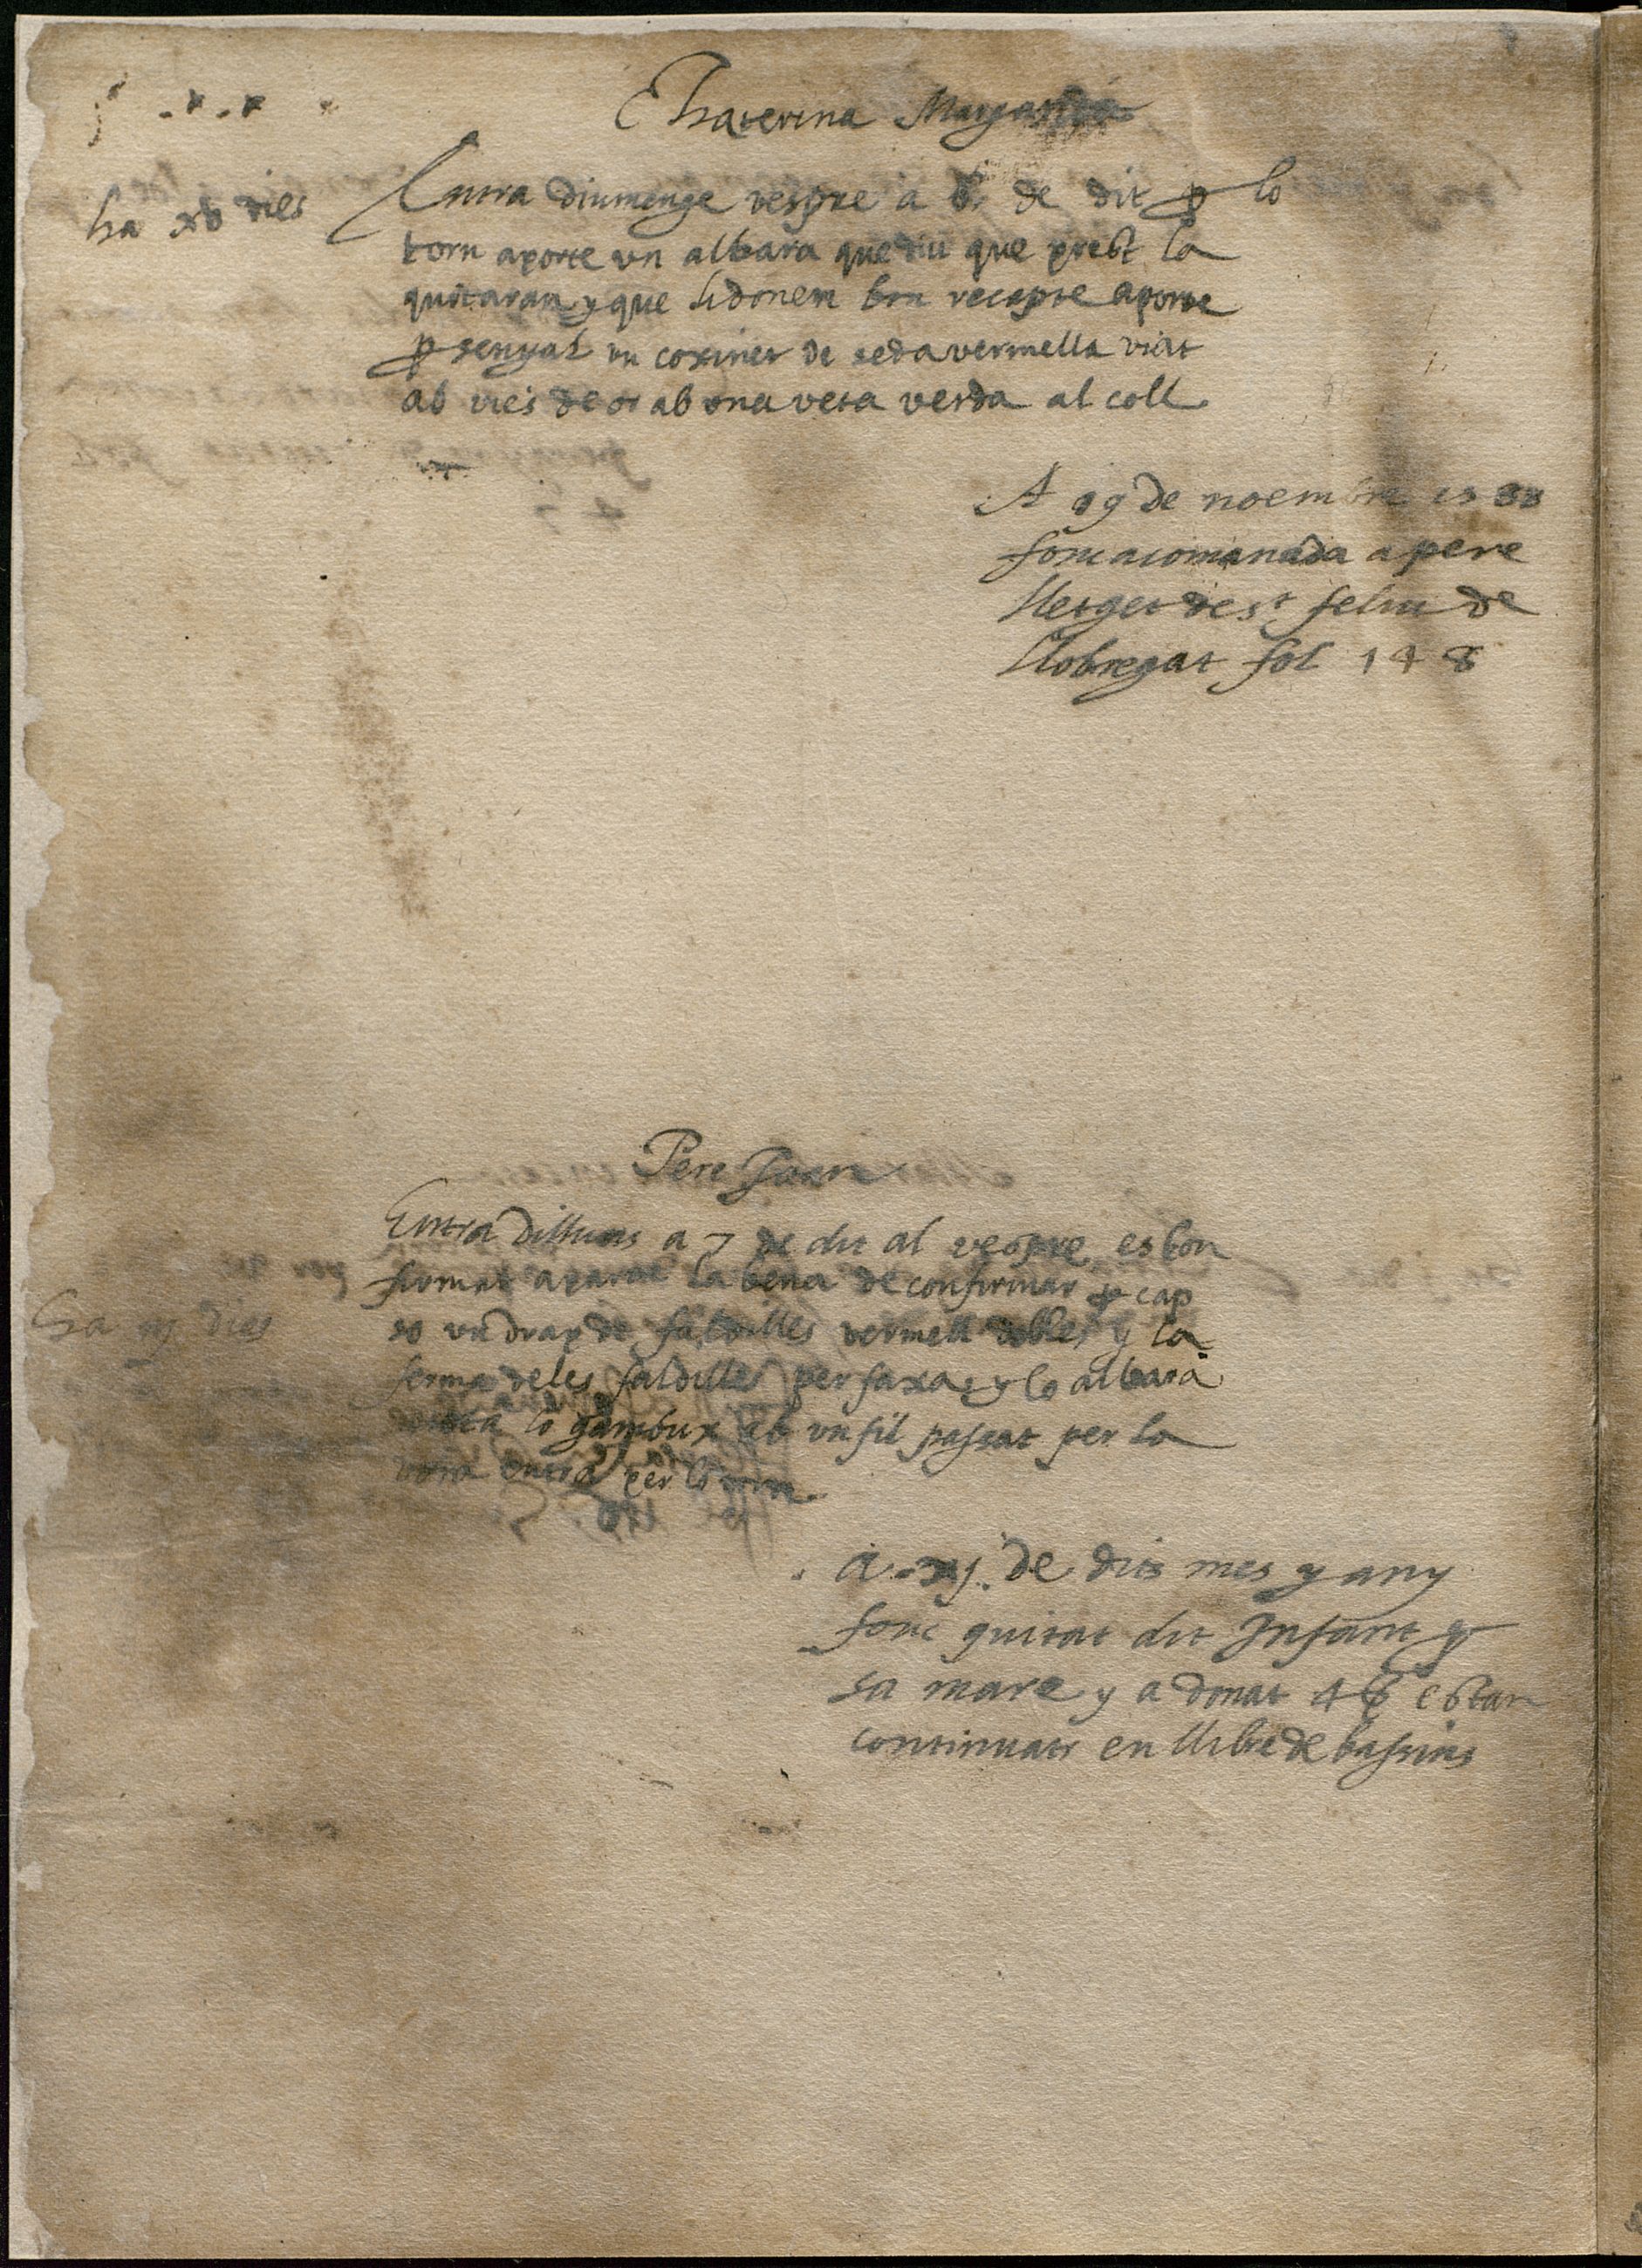 Chaterina Margarida
ha xb dies
Entra diumenge vespre a 6 de dit p lo
torn aporte un albara que diu que prest la
quitaran y que li donem bon recapte aporte
p senyal un coxinet de seda vermella viat
ab vies de or ab una veta verda al coll
A 19 de noembre es 88
fonc acomanada a pere
Herget de st feliu de
Llobregat fol 148
Pere Joan
Entra dilluns a 7 de dit al vespre es bon
aporte la bena de confirmar p cap
ha dies
so un drap de faldilles vermell dobles y la
de les faldilles per faxa y lo albara
lo gambux ab un fil passat per la
vora entra per lo torn
a xj de dit mes y any
fonc quitat dit Infant p
sa mare y a donat 4 estan
continuats en llibre de bassins